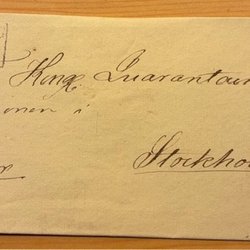 Kongl Quarantain
onen i
Stockho